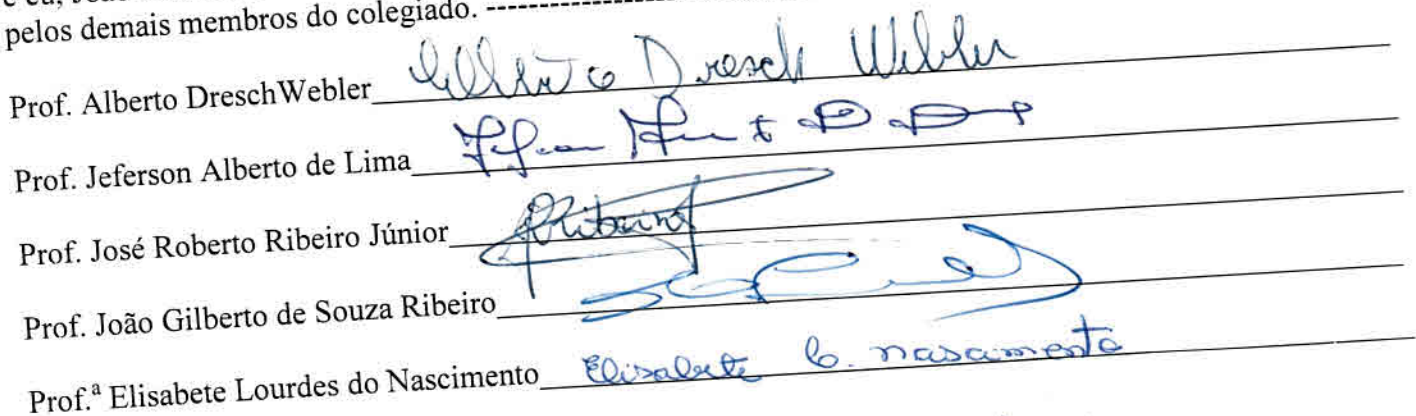 pelos demais membros do colegiado. --------------------
Prof. Alberto DreschWebler Alberto Dresch Webler
Prof. Jeferson Alberto de Lima
Prof. José Roberto Ribeiro Júnior Ribeiro
Prof. João Gilberto de Souza Ribeiro
Prof.ª Elisabete Lourdes do Nascimento Elisabete L. nascimento